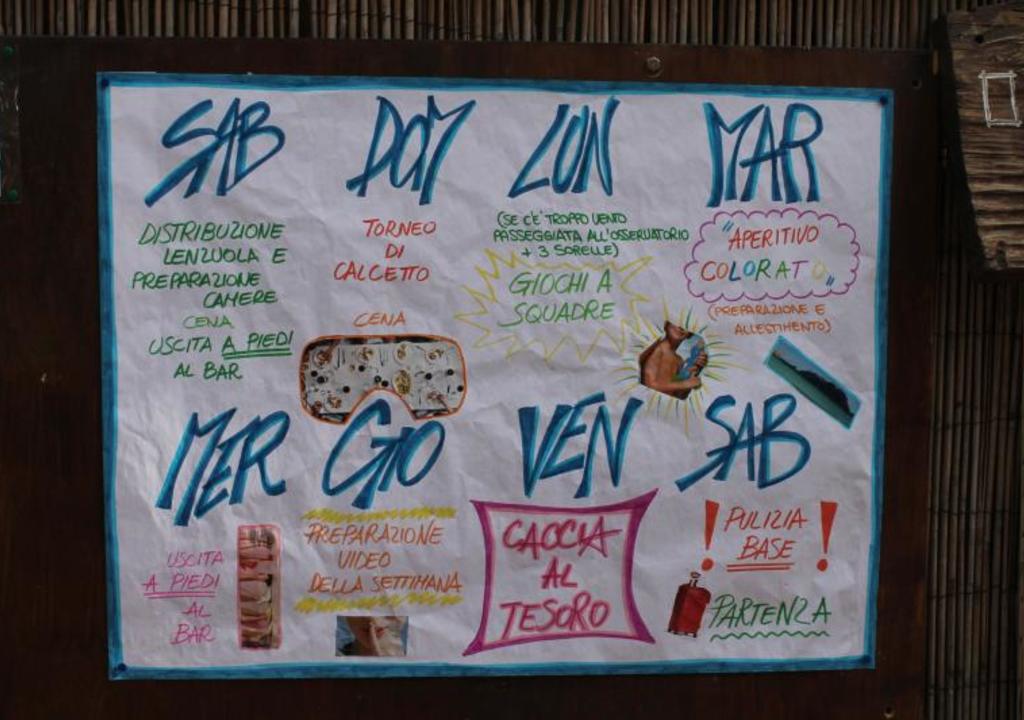 SAB
DISTRIBUZIONE
LENZUOLA E
PREPARAZIONE
CAMERE
CENA
USCITA A PIEDI
AL BAR
DOM
TORNEO
DI
CALCETTO
CENA
LUN
(SE C'E' TROPPO VENTO
PASSEGGIATA ALL'OSSERVATORIO
+ 3 SORELLE)
GIOCHI A
SQUADRE
MAR
"APERITIVO
COLORATO"
(PREPARAZIONE E
ALLESTIMENTO)
MER
USCITA
A PIEDI
AL
BAR
GIO
PREPARAZIONE
VIDEO
DELLA SETTIMANA
VEN
CACCIA
AL
TESORO
SAB
! PULIZIA !
BASE
PARTENZA